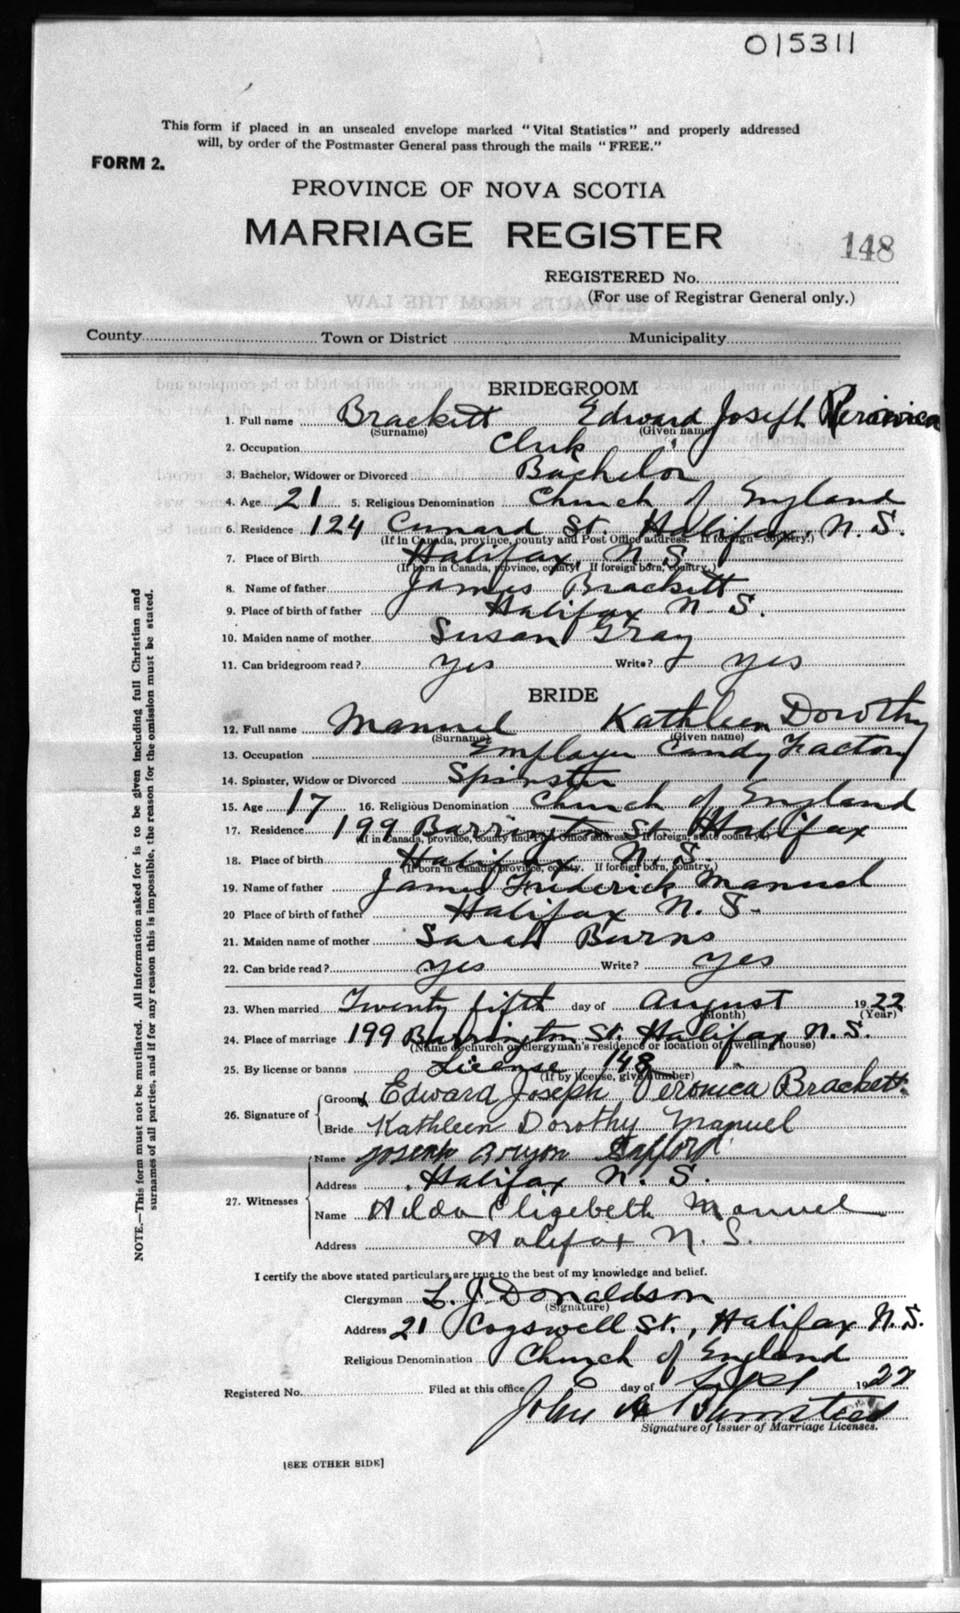 015311
This form if placed in an unsealed envelope marked "Vital Statistics" and properly addressed
will, by order of the Postmaster General pass through the mails "FREE."
FORM 2.
PROVINCE OF NOVA SCOTIA
MARRIAGE REGISTER
148
REGISTERED No.
(For use of Registrar General only.)
County Town or District Municipality
BRIDEGROOM
1. Full name Brackett Edward Joseph
(Surname) (Given name)
2. Occupation Clerk
3. Bachelor, Widower or Divorced Bachelor
4. Age 21 5. Religious Denomination Church of England
6. Residence 124 Cunard St. Halifax, N.S.
(If in Canada, province, county and Post Office address. If foreign country.)
7. Place of Birth Halifax N.S.
(If born in Canada, province, county. If foreign born, country.)
8. Name of father James Brackett
9. Place of birth of father Halifax N.S.
10. Maiden name of mother Susan Gray
11. Can bridegroom read? yes Write? yes
BRIDE
12. Full name Manuel Kathleen Dorothy
(Surname) (Given name)
13. Occupation Candy Factory
14. Spinster, Widow or Divorced Spinster
15. Age 17 16. Religious Denomination Church of England
17. Residence 199 Barrington St. Halifax
(If in Canada, province, county and Post Office address. If foreign, state country.)
18. Place of birth Halifax N.S.
(If born in Canada, province, county. If foreign born, country.)
19. Name of father James Frederick Manuel
20 Place of birth of father Halifax N.S.
21. Maiden name of mother Sarah Burns
22. Can bride read? yes Write? yes
23. When married Twenty fifth day of August 1922
(Month) (Year)
24. Place of marriage 199 Barrington St. Halifax N.S.
(Name of church or clergyman's residence or location of dwelling house)
25. By license or banns License 148
(If by license, give number)
26. Signature of
Groom Edward Joseph Veronica Brackett
Bride Kathleen Dorothy Manuel
27. Witnesses
Name Joseph Stafford
Address Halifax N.S.
Name Hilda Elizebeth Manuel
Address Halifax N.S.
I certify the above stated particulars are true to the best of my knowledge and belief.
Clergyman L. J. Donaldson
(Signature)
Address 21 Cogswell St., Halifax N.S.
Religious Denomination Church of England
Registered No. Filed at this office day of Sept 1922
John A
Signature of Issuer of Marriage Licenses.
[SEE OTHER SIDE]
NOTE.—This form must not be mutilated. All information asked for is to be given including full Christian and
surnames of all parties, and if for any reason this is impossible, the reason for the omission must be stated.